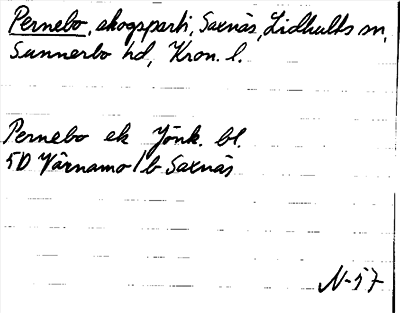 Pernebo, skogsparti, Saxnäs, Lidhults sn,
Sunnerbo hd, Kron. l.
Pernebo ek Jönk. bl.
5D Värnamo 1b Saxnäs
N-57